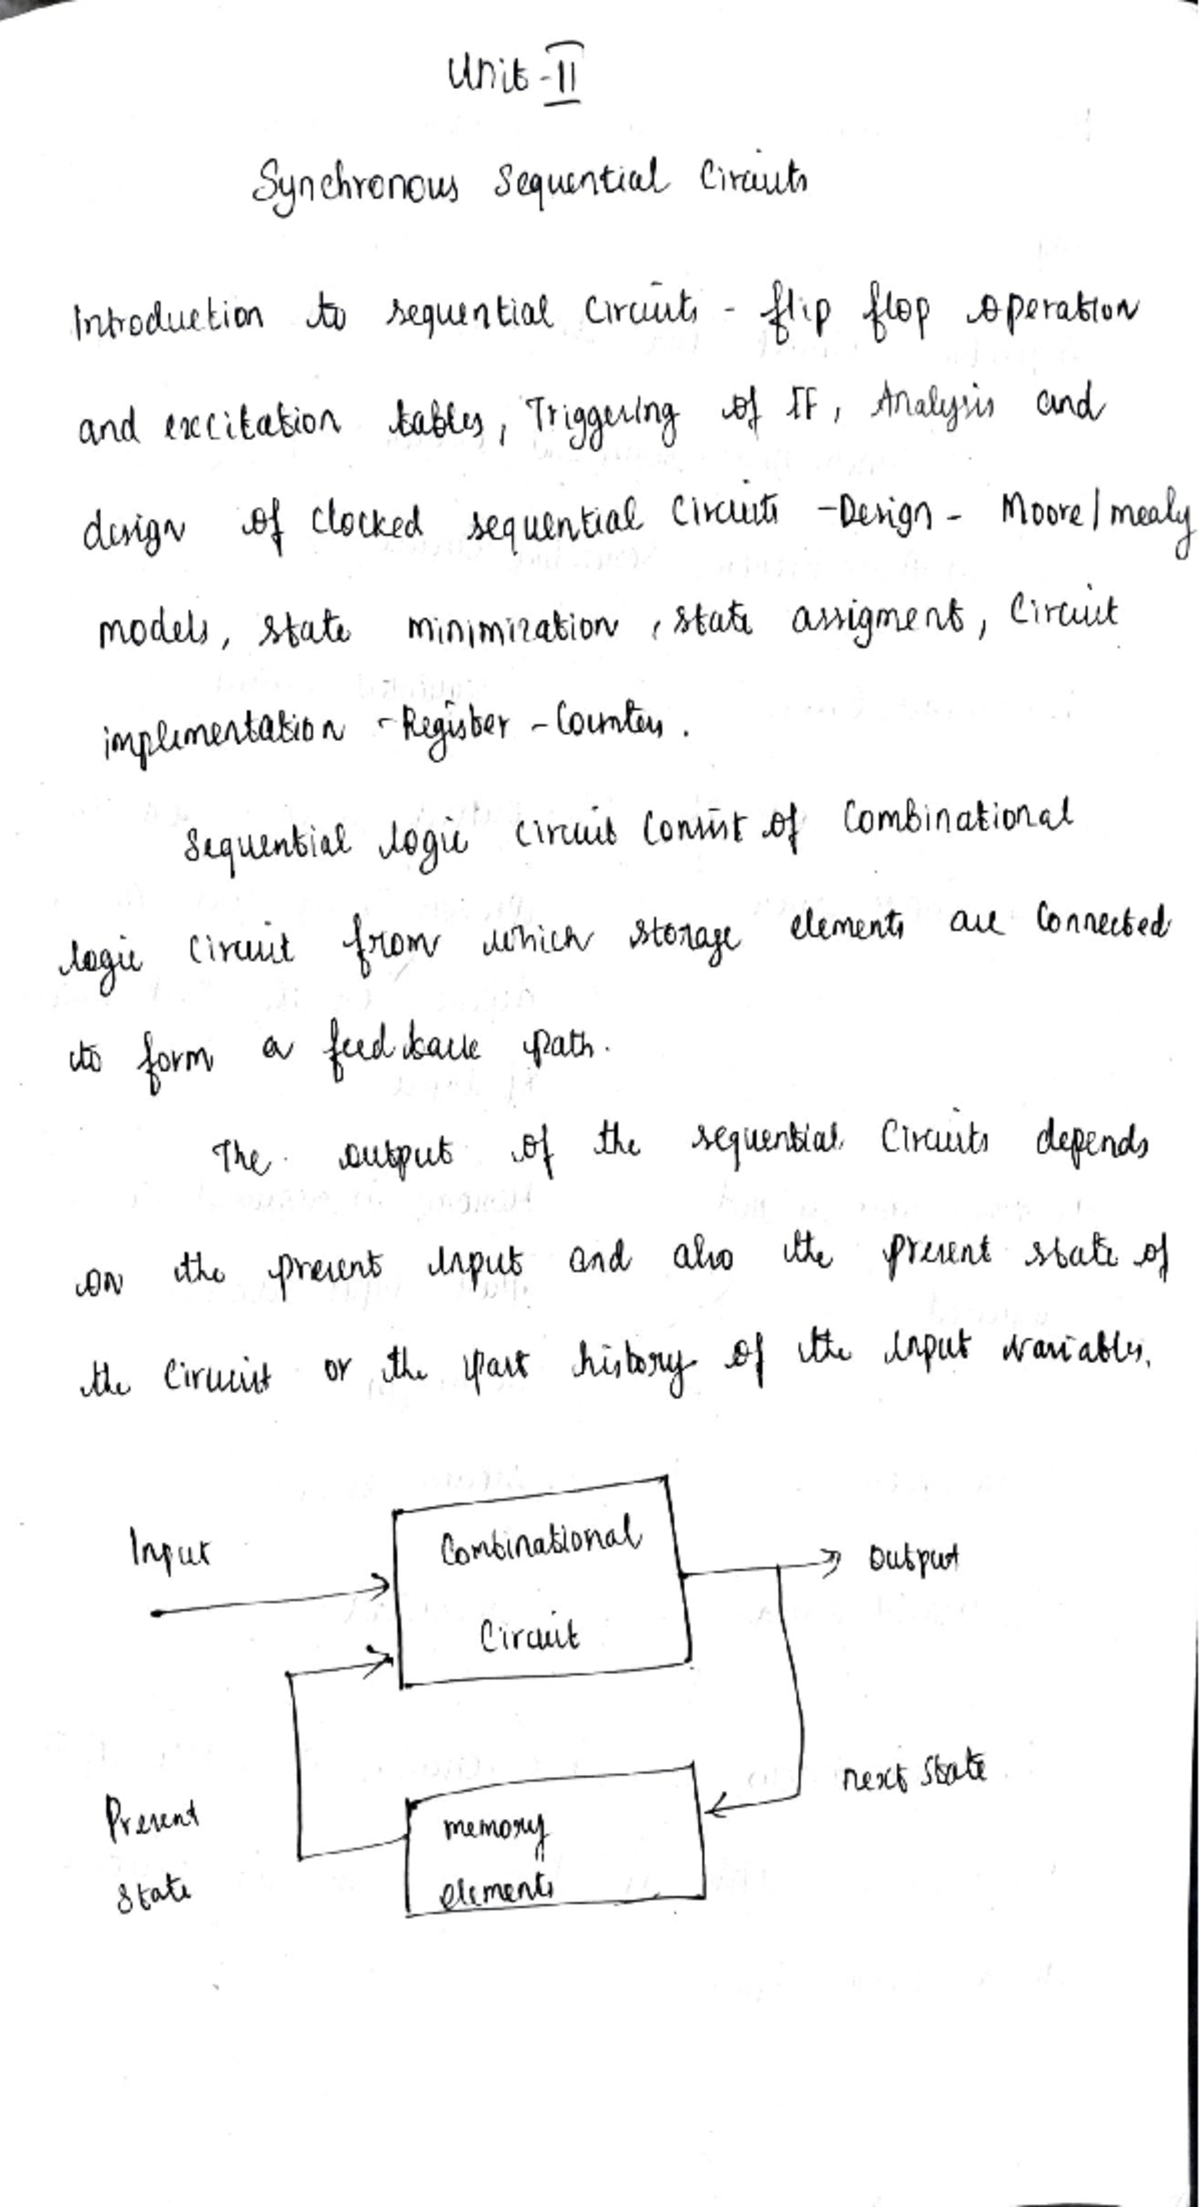 Unit-II
Synchronous Sequential Circuits
Introduction to sequential circuits - flip flop operation
and excitation tables, Triggering of FF, Analysis and
design of clocked sequential circuits - Design - Moore/mealy
models, state minimization, state assigment, circuit
implementation - Register - Counters.
Sequential logic circuit consist of combinational
logic circuit from which storage elements are connected
to form a feedback path.
The output of the sequential circuits depends
on the present input and also the present state of
the circuit or the past history of the input variables.
Input
Combinational
Circuit
Output
next state
Present
state
memory
elements